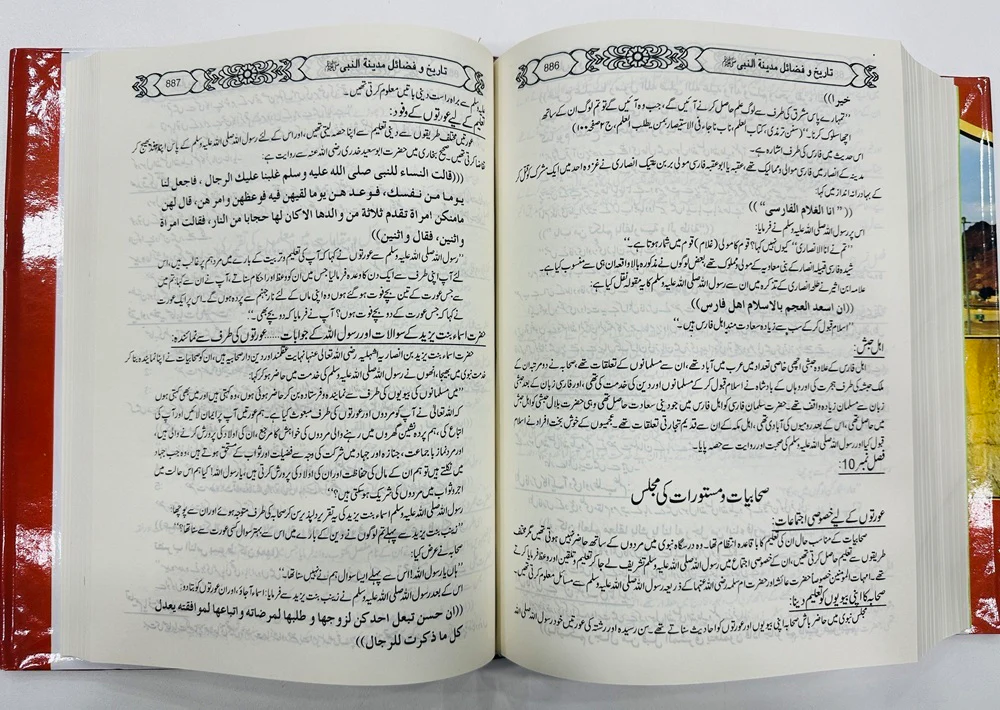 تاریخ و فضائل مدینۃ النبی ﷺ
886
خیرا))
’’تمہارے پاس مشرق کی طرف سے لوگ علم حاصل کرنے آئیں گے، جب وہ آئیں گے تو تم لوگ ان کے ساتھ
اچھا سلوک کرنا۔‘‘ (سنن ترمذی، کتاب العلم، باب ماجاء فی الاستیصاء بمن یطلب العلم، ج ۲ صفحہ ۱۰۰)
اس حدیث میں فارس کی طرف اشارہ ہے۔
مدینہ کے انصار میں فارسی موالی و ممالیک تھے، عقبہ یا ابو عقبہ فارسی مولیٰ بر بن عتیک انصاری نے غزوہ احد میں ایک مشرک کو قتل کر
کے بہادرانہ انداز میں کہا:
((’’ انا الغلام الفارسی ‘‘))
اس پر رسول اللہ صلی اللہ علیہ وسلم نے فرمایا:
’’تم نے انا الانصاری ‘‘ کیوں نہیں کہا؟ قوم کا مولیٰ (غلام) قوم میں شمار ہوتا ہے۔‘‘
شیدہ فارسی قبیلہ انصار کے بنی معاویہ کے مولیٰ و مملوک تھے، بعض لوگوں نے مذکورہ بالا واقعہ ان ہی سے منسوب کیا ہے۔
علامہ ابن اثیر نے انصاری کے تذکرہ میں ان سے رسول اللہ صلی اللہ علیہ وسلم کا یہ مقولہ نقل کیا ہے:
((ان اسعد العجم بالاسلام اهل فارس))
’’اسلام قبول کر کے سب سے زیادہ سعادت مند اہل فارس ہیں۔‘‘
اہل حبش:
اہل فارس کے علاوہ حبشی اچھی خاصی تعداد میں عرب میں آباد تھے، ان سے مسلمانوں کے تعلقات تھے، صحابہ نے دو مرتبہ ان کے
ملک حبشہ کی طرف ہجرت کی اور وہاں کے بادشاہ نے اسلام قبول کر کے مسلمانوں اور دین کی خدمت کی تھی، اور فارسی زبان کے بعد حبشی
زبان سے مسلمان زیادہ واقف تھے۔ حضرت سلمان فارسی کو اہل فارس میں جو دینی سعادت حاصل تھی وہی حضرت بلال حبشی کو اہل حبش
میں حاصل تھی، اس کے بعد رومیوں کی آبادی تھی، اہل مکہ کے ان سے قدیم تجارتی تعلقات تھے۔ عجمیوں کے خوش بخت افراد نے اسلام
قبول کیا اور رسول اللہ صلی اللہ علیہ وسلم کی صحبت اور روایت سے حصہ پایا۔
فصل نمبر 10:
صحابیات و مستورات کی مجلس
عورتوں کے لیے خصوصی اجتماعات:
صحابیات کے مناسب حال ان کی تعلیم کا باقاعدہ انتظام تھا۔ وہ درسگاہ نبوی میں مردوں کے ساتھ حاضر نہیں ہوتی تھیں مگر مختلف
طریقوں سے تعلیم حاصل کرتی تھیں، ان کے خصوصی اجتماع میں رسول اللہ صلی اللہ علیہ وسلم تشریف لے جا کر تعلیم و تلقین اور وعظ فرمایا کرتے
تھے۔ امہات المومنین خصوصاً حضرت عائشہ اور حضرت ام سلمہ رضی اللہ عنہما کے ذریعہ رسول اللہ صلی اللہ علیہ وسلم سے مسائل معلوم کرتی تھیں۔
صحابہ کا اپنی بیویوں کو تعلیم دینا:
مجلس نبوی میں حاضر باش صحابہ اپنی بیویوں اور عورتوں کو احادیث سناتے تھے۔ سن رسیدہ اور رشتہ کی عورتیں خود رسول اللہ صلی اللہ
تاریخ و فضائل مدینۃ النبی ﷺ
887
علیہ وسلم سے براہ راست دینی باتیں معلوم کرتی تھیں۔
تعلیم کے لیے عورتوں کے وفود:
عورتیں مختلف طریقوں سے دینی تعلیم سے اپنا حصہ لیتی تھیں، اور اس کے لئے رسول اللہ صلی اللہ علیہ وسلم کے پاس اپنا وفد بھیج کر
تقاضا کرتی تھیں۔ صحیح بخاری میں حضرت ابو سعید خدری رضی اللہ عنہ سے روایت ہے:
(((قالت النساء للنبى صلى الله عليه وسلم غلبنا عليك الرجال ، فاجعل لنا
يوما من نفسك، فوعد هن يوما لقيهن فيه فوعظهن وامر هن، قال لهن
مامنكن امراة تقدم ثلاثة من والدها الا كان لها حجابا من النار، فقالت امراة
واثنين، فقال واثنين))
’’رسول اللہ صلی اللہ علیہ وسلم سے عورتوں نے کہا کہ آپ کی تعلیم و تربیت کے بارے میں مرد ہم پر غالب ہیں، اس
لئے آپ اپنی طرف سے ایک دن کا وعدہ فرمالیا جس میں ان کو وعظ اور احکام سناتے، آپ نے ان سے کہا کہ تم میں
سے جس عورت کے تین بچے فوت ہو گئے ہوں وہ اپنی ماں کے لئے نار جہنم سے پردہ ہوں گے۔ اس پر ایک عورت
نے کہا کہ جس عورت کے دو بچے فوت ہوں؟ آپ نے فرمایا کہ دو بچے بھی۔‘‘
حضرت اسماء بنت یزید کے سوالات اور رسول اللہ کے جوابات.....عورتوں کی طرف سے نمائندہ:
حضرت اسماء بنت یزید بن انصاریہ اشہلیہ رضی اللہ تعالیٰ عنہا نہایت عقلمند اور دین دار صحابیہ ہیں، ان کو صحابیات نے اپنا نمائندہ بنا کر
خدمت نبوی میں بھیجا، انھوں نے رسول اللہ صلی اللہ علیہ وسلم کی خدمت میں حاضر ہو کر کہا:
’’میں مسلمانوں کی بیویوں کی طرف سے نمائندہ و فرستادہ بن کر حاضر ہوئی ہوں، وہ کہتی ہیں اور میں بھی کہتی ہوں
کہ اللہ تعالیٰ نے آپ کو مردوں اور عورتوں کی طرف مبعوث کیا ہے۔ ہم عورتیں آپ پر ایمان لائیں اور آپ کی
اتباع کی، ہم پردہ نشین گھروں میں رہنے والی مردوں کی خواہش کا مرجع، ان کی اولاد کی پرورش کرنے والی ہیں،
اور مرد نماز باجماعت، جنازہ اور جہاد میں شرکت کی وجہ سے فضیلت اور ثواب کے مستحق ہوتے ہیں، وہ جب جہاد
میں نکلتے ہیں تو ہم ان کے مال کی حفاظت اور ان کی اولاد کی پرورش کرتی ہیں، یا رسول اللہ! کیا ہم اس حالت میں
اجر و ثواب میں مردوں کی شریک ہو سکتی ہیں؟‘‘
رسول اللہ صلی اللہ علیہ وسلم اسماء بنت یزید کی یہ تقریر دلپذیر سن کر صحابہ کی طرف متوجہ ہوئے اور ان سے پوچھا:
’’زینب بنت یزید سے پہلے تم لوگوں نے دین کے بارے میں اس سے بہتر سوال کسی عورت سے سنا تھا۔‘‘
صحابہ نے عرض کیا:
’’ہاں یا رسول اللہ! اس سے پہلے ایسا سوال ہم نے نہیں سنا تھا۔‘‘
اس کے بعد رسول اللہ صلی اللہ علیہ وسلم نے زینب بنت یزید سے فرمایا: اسماء آ جاؤ، اور ان عورتوں کو بتا دو:
((ان حسن تبعل احد كن لزوجها و طلبها لمرضاته واتباعها لموافقته يعدل
كل ما ذكرت للرجال))